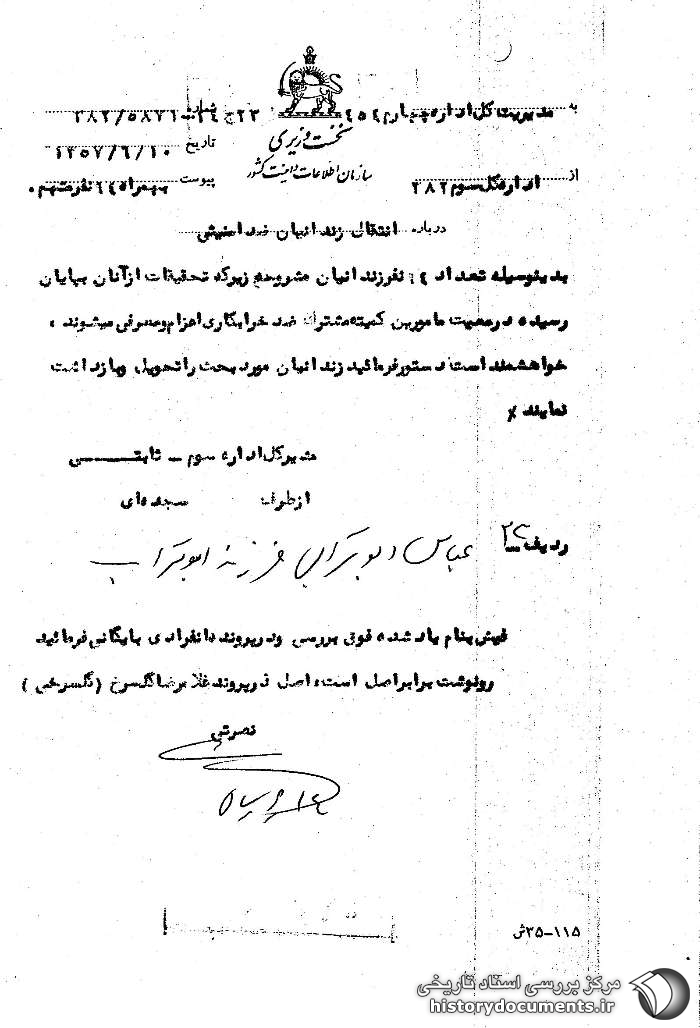 به مدیریت کل اداره چهارم ۴۵۴ ۲۳ج ۲۴ شماره ۳۸۲/۵۸۷۱
نخست وزیری
تاریخ ۱۳۵۷/۶/۱۰
سازمان اطلاعات و امنیت کشور
از اداره کل سوم ۳۸۲ پیوست بهمراه ۲۴ نفر متهم.
درباره انتقال زندانیان ضد امنیتی
بدینوسیله تعداد ۲۴ نفر زندانیان مشروحه زیر که تحقیقات از آنان بپایان
رسیده در معیت مامورین کمیته مشترک ضد خرابکاری اعزام و معرفی میشوند ،
خواهشمند است دستور فرمائید زندانیان مورد بحث را تحویل و بازداشت
نمایند ٪
مدیر کل اداره سوم ـ ثابتـــــی
از طرف سجده‌ای
ردیف ۲۴ عباس ابوترابی فرزند ابوتراب
فیش بنام یاد شده فوق بررسی و در پرونده انفرادی بایگانی فرمائید
رونوشت برابر اصل است، اصل در پرونده غلامرضا گلسرخ (گلسرخی)
نصرتی
۳۵-۱۱۵ش
مرکز بررسی اسناد تاریخی
historydocuments.ir